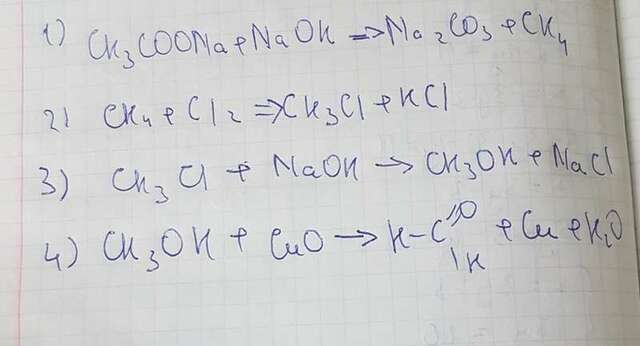 1) CH₃COONa + NaOH ⇒ Na₂CO₃ + CH₄
2) CH₄ + Cl₂ ⇒ CH₃Cl + HCl
3) CH₃Cl + NaOH → CH₃OH + NaCl
4) CH₃OH + CuO → H-C//O + Cu + H₂O
\H